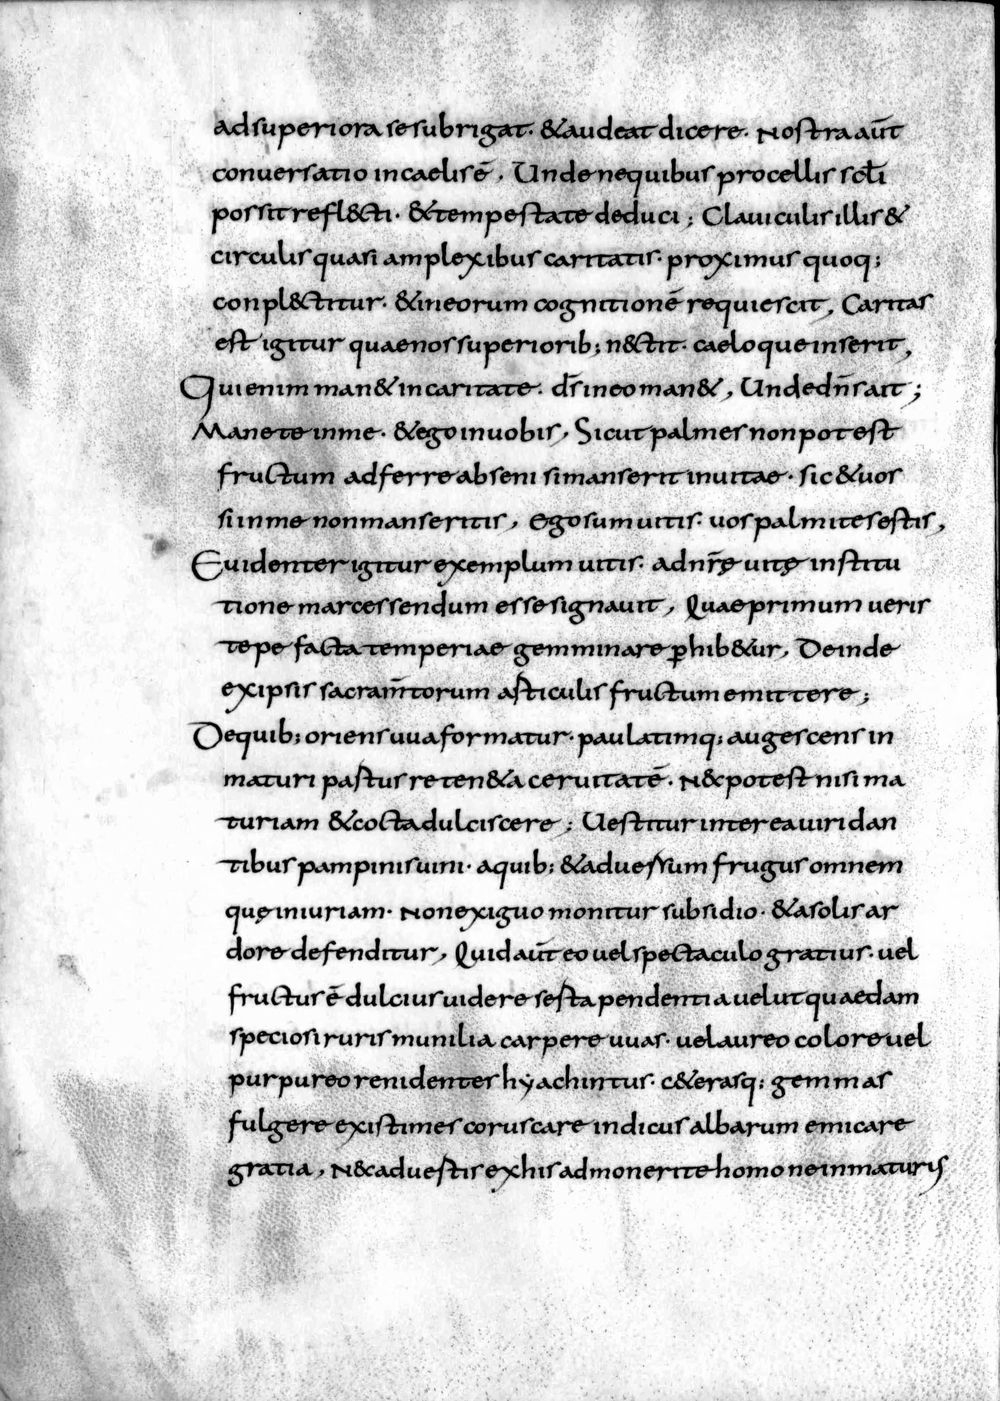 adsuperiora se subrigat· &audeat dicere· Nostra aūt
conuersatio incaelis ē, Unde nequibus procellis scl̄i
possit refl&cti· &tempestate deduci; Clauiculis illis &
circulis quasi amplexibus caritatis· proximus quoq;
conpl&ctitur· &ineorum cognitionē requiescit, Caritas
est igitur quaenos superiorib; n&ctit· caeloque inserit,
Qui enim man& incaritate· ds̄ ineo man&, Unde dn̄s ait;
Manete inme· &ego inuobis, Sicut palmes non potest
fructum adferre abseni simanserit inuitae· sic &uos
siinme nonmanseritis, Ego sum uitis· uos palmites estis,
Euidenter igitur exemplum uitis· adnr̄ę uitę institu
tione marcessendum esse signauit, Quae primum ueris
tepe facta temperiae gemminare p̱hib&ur, Deinde
exipsis sacram̄torum asticulis fructum emittere;
Dequib; oriens uua formatur· paulatimq; augescens in
maturi pastus reten&aceruitatē· N&potest nisi ma
turiam &cocta dulciscere; Uestitur interea uiridan
tibus pampinis uini· aquib; &aduersum frugus omnem
quę iniuriam· Non exiguo monitur subsidio· &asolis ar
dore defenditur, Quid aūt eo uel spectaculo gratius· uel
fructus ē dulcius uidere sesta pendentia uelut quaedam
speciosi ruris munilia carpere uuas· uel aureo colore uel
purpureo renidenter hẏachintus· c&erasq; gemmas
fulgere existimes coruscare indicus albarum emicare
gratia, N&caduestis exhis admonerite homo neinmaturis